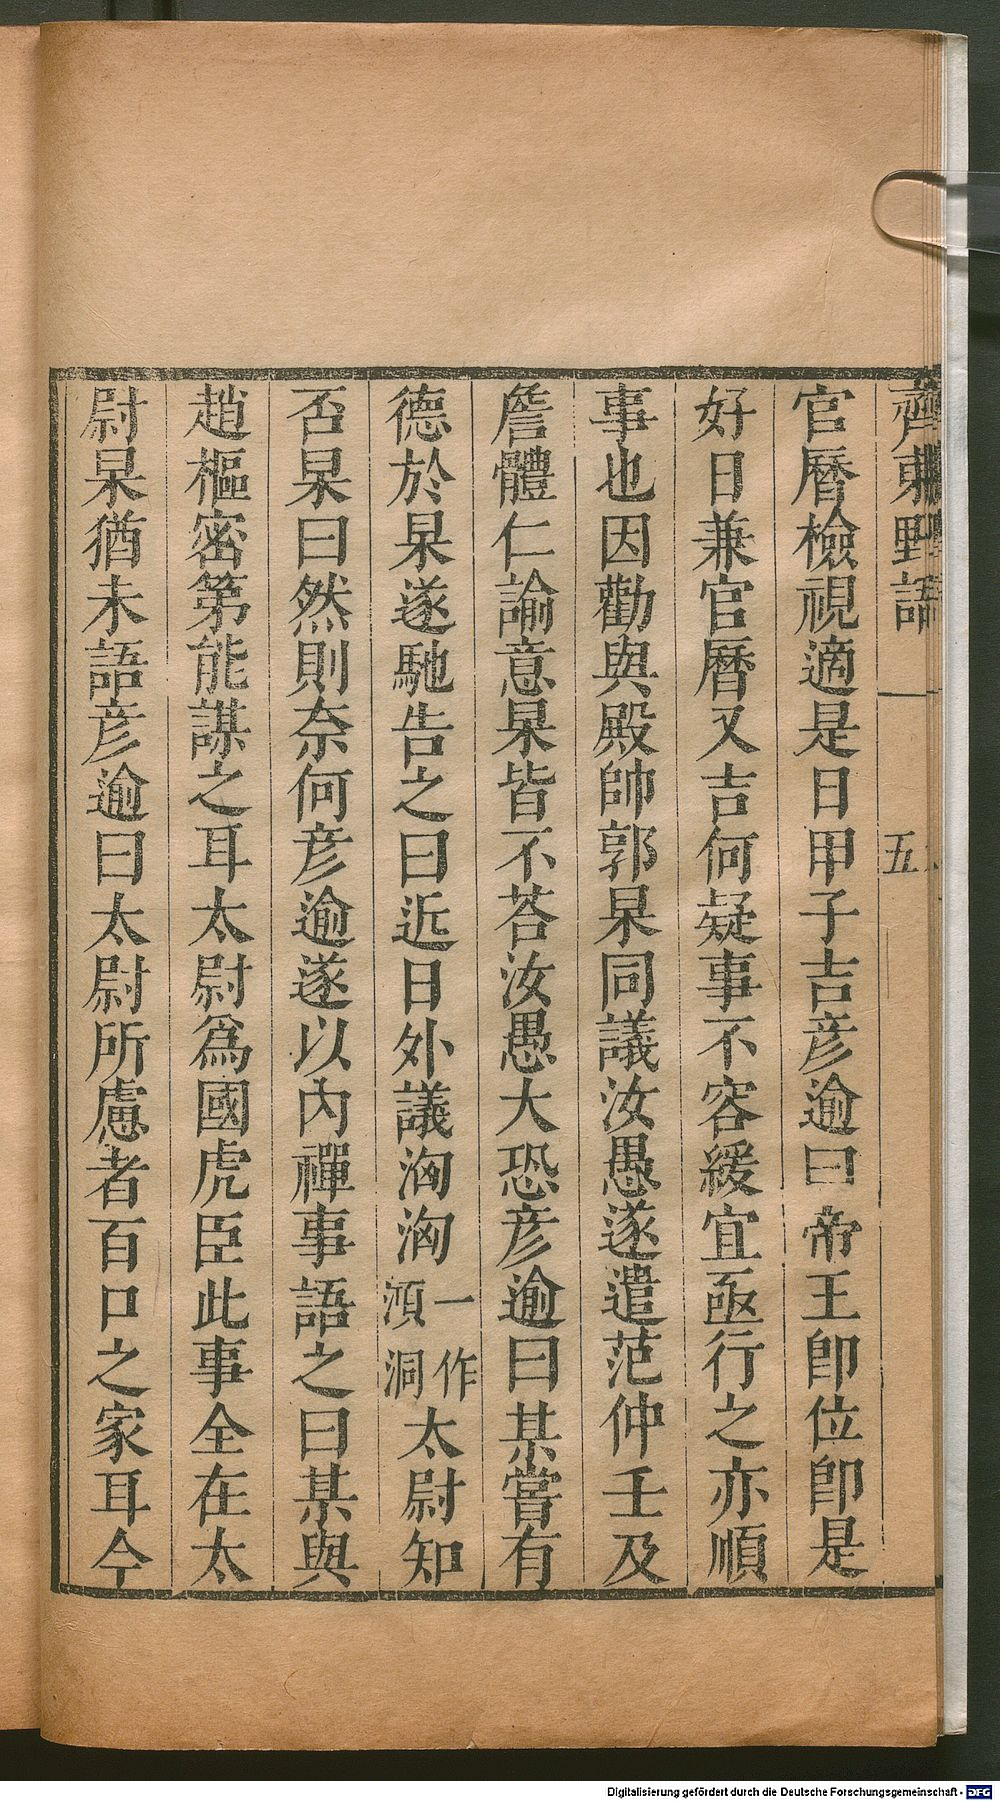 齊東野語
五
官曆檢視適是日甲子吉彥逾曰帝王卽位卽是
好日兼官曆又吉何疑事不容緩宜亟行之亦順
事也因勸與殿帥郭杲同議汝愚遂遣范仲壬及
詹體仁諭意杲皆不荅汝愚大恐彥逾曰某嘗有
德於杲遂馳告之曰近日外議洶洶一作澒洞太尉知
否杲曰然則奈何彥逾遂以內禪事語之曰某與
趙樞密第能謀之耳太尉爲國虎臣此事全在太
尉杲猶未語彥逾曰太尉所慮者百口之家耳今
Digitalisierung gefördert durch die Deutsche Forschungsgemeinschaft - DFG